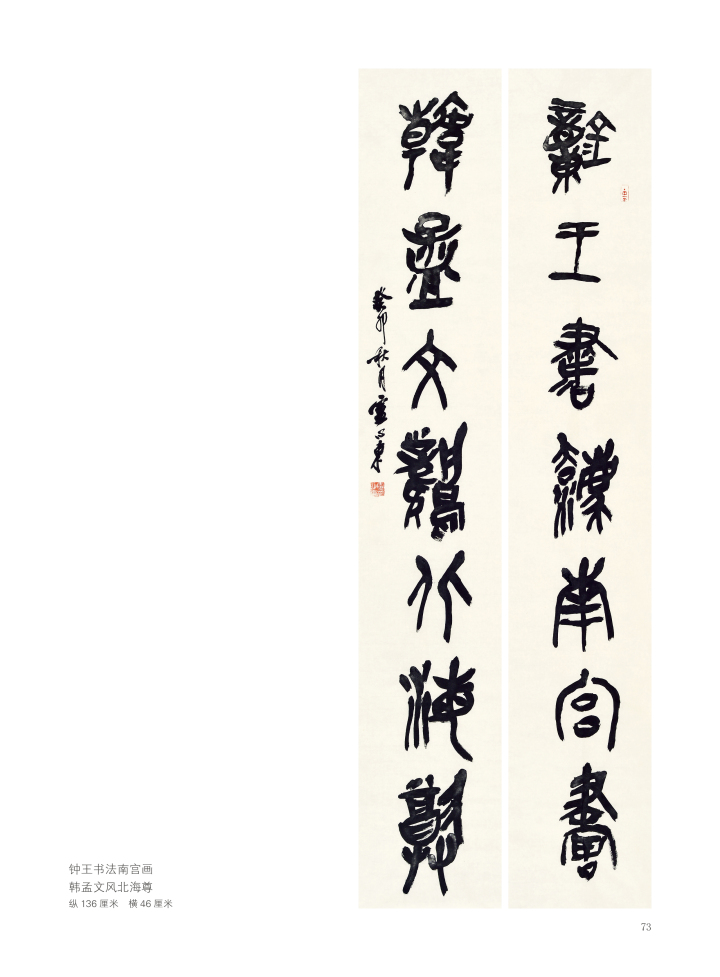 鍾王書灋南宮畫
韓孟文鳳北海尊
癸卯秋月雪心東
钟王书法南宫画
韩孟文风北海尊
纵 136 厘米 横 46 厘米
73